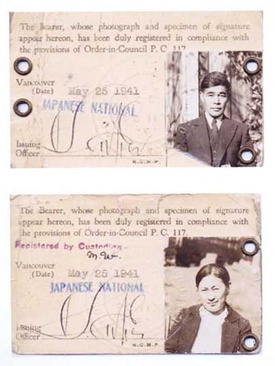 The Bearer, whose photograph and specimen of signature
appear hereon, has been duly registered in compliance with
the provisions of Order-in-Council P. C. 117.
Vancouver
(Date) May 25 1941
JAPANESE NATIONAL
Issuing
Officer
R.C.M.P.
The Bearer, whose photograph and specimen of signature
appear hereon, has been duly registered in compliance with
the provisions of Order-in-Council P. C. 117.
Registered by Custodian
Vancouver
(Date) May 25 1941
JAPANESE NATIONAL
Issuing
Officer
R.C.M.P.